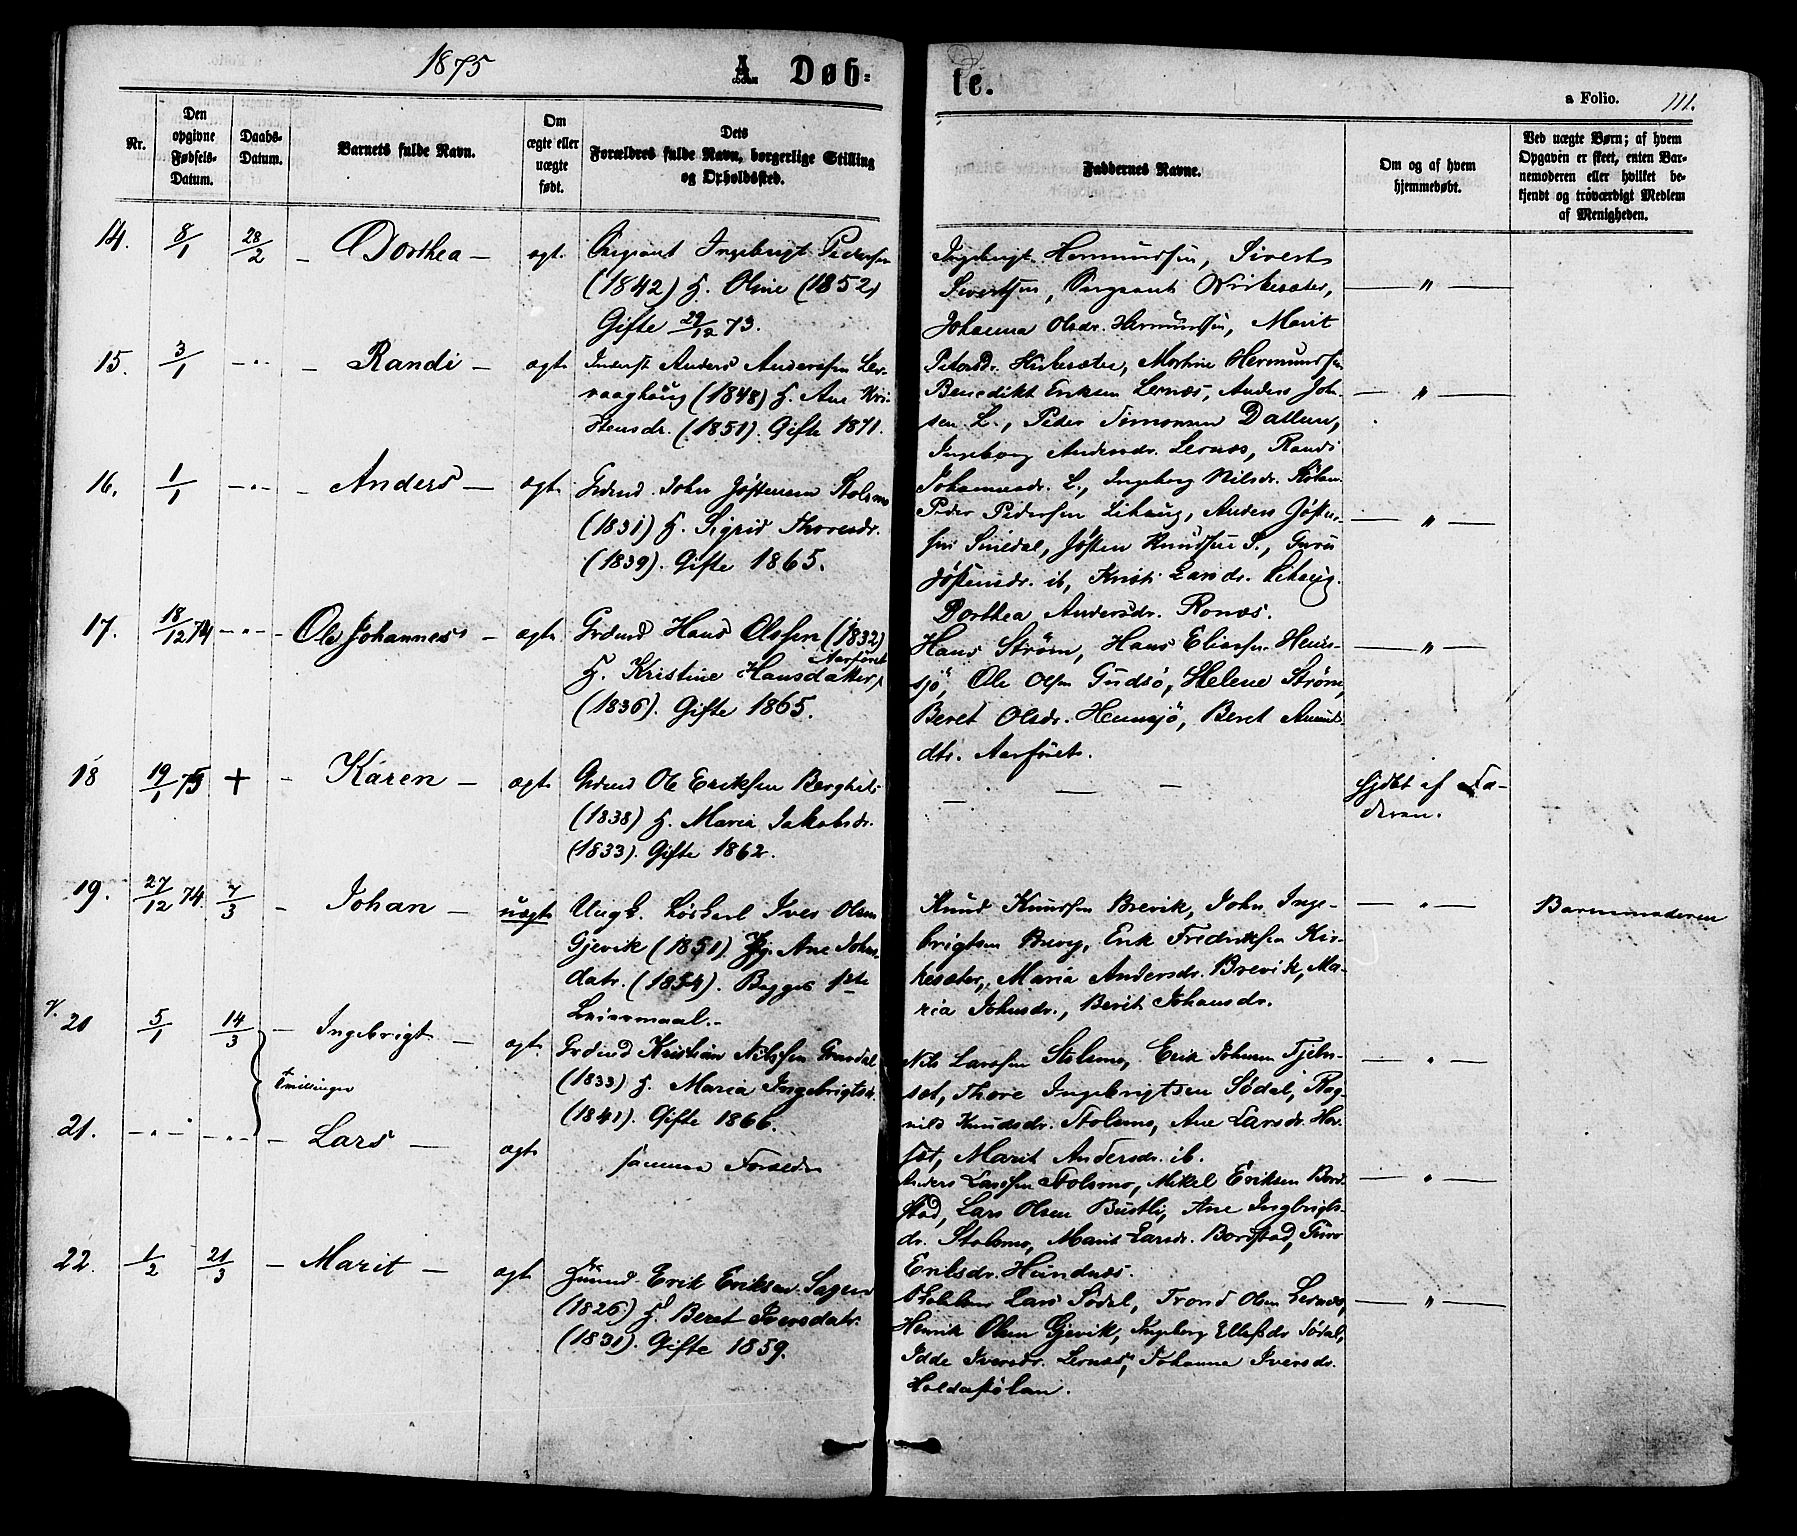 1875
A. Døb-
te.
a Folio.
111.
Nr.
Den opgivne Fødsels-Datum.
Daabs-Datum.
Barnets fulde Navn.
Om ægte eller uægte født.
Dets Forældres fulde Navn, borgerlige Stilling og Opholdssted.
Faddernes Navne.
Om og af hvem hjemmedøbt.
Ved uægte Børn; af hvem Opgaven er skeet, enten Barnemoderen eller hvilket bekjendt og troværdigt Medlem af Menigheden.
14. 8/1 28/2 - Dorthea - ægt.
Sergeant Ingebrigt Pedersen
(1842) H. Oline (1852)
Gifte 29/12 73.
Ingebrigt Hermundsen, Sivert
Sivertsen, Sergeant Kirkesæter,
Johanna Olsdr. Hermundsen, Marit
Pedersd. Kirkesæter, Martine Hermundsen
— " —
15. 3/1 - " - - Randi - ægt.
Inderst Anders Andersen Ler-
vaaghaug (1848) H. Ane Kri-
stensdr. (1851). Gifte 1871.
Benedikt Eriksen Lernæs, Anders Joh-
sen L., Peder Simonsen Dallum,
Ingeborg Andersdr. Lernæs, Randi
Johannesdr. L., Ingeborg Nilsdr.
— " —
16. 1/1 - " - - Anders - ægt.
Grdmd. John Jøstensen Stolsmo
(1831) H. Sigrid Thoresdr.
(1839). Gifte 1865.
Peder Pedersen Lihaug, Anders Jøsten-
sen Sinedal, Jøsten Knudsen S., Guru
Jøstensdr. ib, Kristi Larsdr. Lihaug.
Dorthea Andersdr. Rønæs.
— " —
17. 18/12 74 - " - - Ole Johannes - ægt.
Grdmd Hans Olssen (1832)
Aarføret
H. Kristine Hansdatter
(1836). Gifte 1865.
Hans Strøm, Hans Eliassen Hems-
sjø, Ole Olsen Gudsø, Helene Strøm,
Beret Olsdr. Hemsjö, Beret Amunds
dtr. Aarføret.
— " —
18 19/1 75 + - Karen - ægt.
Grdmd Ole Eriksen Berghel.
(1838) H. Maria Jakobsdr.
(1833). Gifte 1862.
— — —
Hjdøbt af Fa-
deren.
19. 27/12 74 7/3 - Johan - uægt.
Ungk. Løskarl Iver Olsen
Gjevik (1851). Pg. Ane Johns
datr. (1854). Begges 1ste
Leiermaal.
Knud Knudsen Brevik, John Inge-
brigtsen Brevig, Erik Fredriksen Kir-
kesæter, Maria Andersdr. Brevik, Ma-
ria Johnsdr., Berit Johansdr.
— " —
Barnemoderen
V. 20 5/1 14/3 - Ingebrigt - ægt.
Tvillinger
Grdmd Kristian Nilssen Grøndal
(1833) H. Maria Ingebrigtsdr.
(1841). Gifte 1866.
Nils Larssen Stolsmo, Erik Johnsen Fjeld-
set, Thore Ingebrigtsen Sødal, Rag-
nild Knudsdr. Stolsmo, Ane Larsdr. Hor-
set, Marit Andersdr. ib.
— " —
21. - " - - " - - Lars - ægt
samme Forældre
Anders Larssen Stolsmo, Mikel Eriksen Bord-
stad, Lars Olsen Bustli, Ane Ingebrigts-
dr. Stolsmo, Marit Larsdr. Bordstad, Guru
Eriksdr. Hundnæs.
— " —
22. 1/2 21/3 - Marit - ægt
Huusmd. Erik Eriksen Sagen
(1826) H. Beret Iversdatr.
(1831). Gifte 1859.
Lars Sødal, Trond Olsen Lernæs,
Henrik Olsen Gjevik, Ingeborg Ellefsdr Sødal,
Idde Iversdr. Lernæs, Johanne Iversdr.
Holdastølan.
— " —